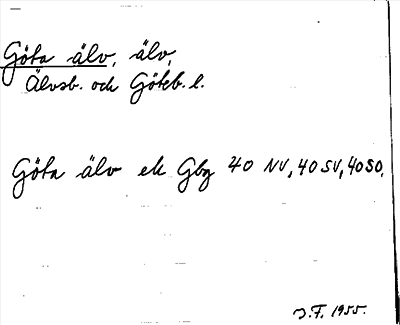 Göta älv, älv,
Älvsb. och Göteb. l.
Göta älv ek Gbg 40 NV, 40 SV, 40 SO.
J.F. 1955.